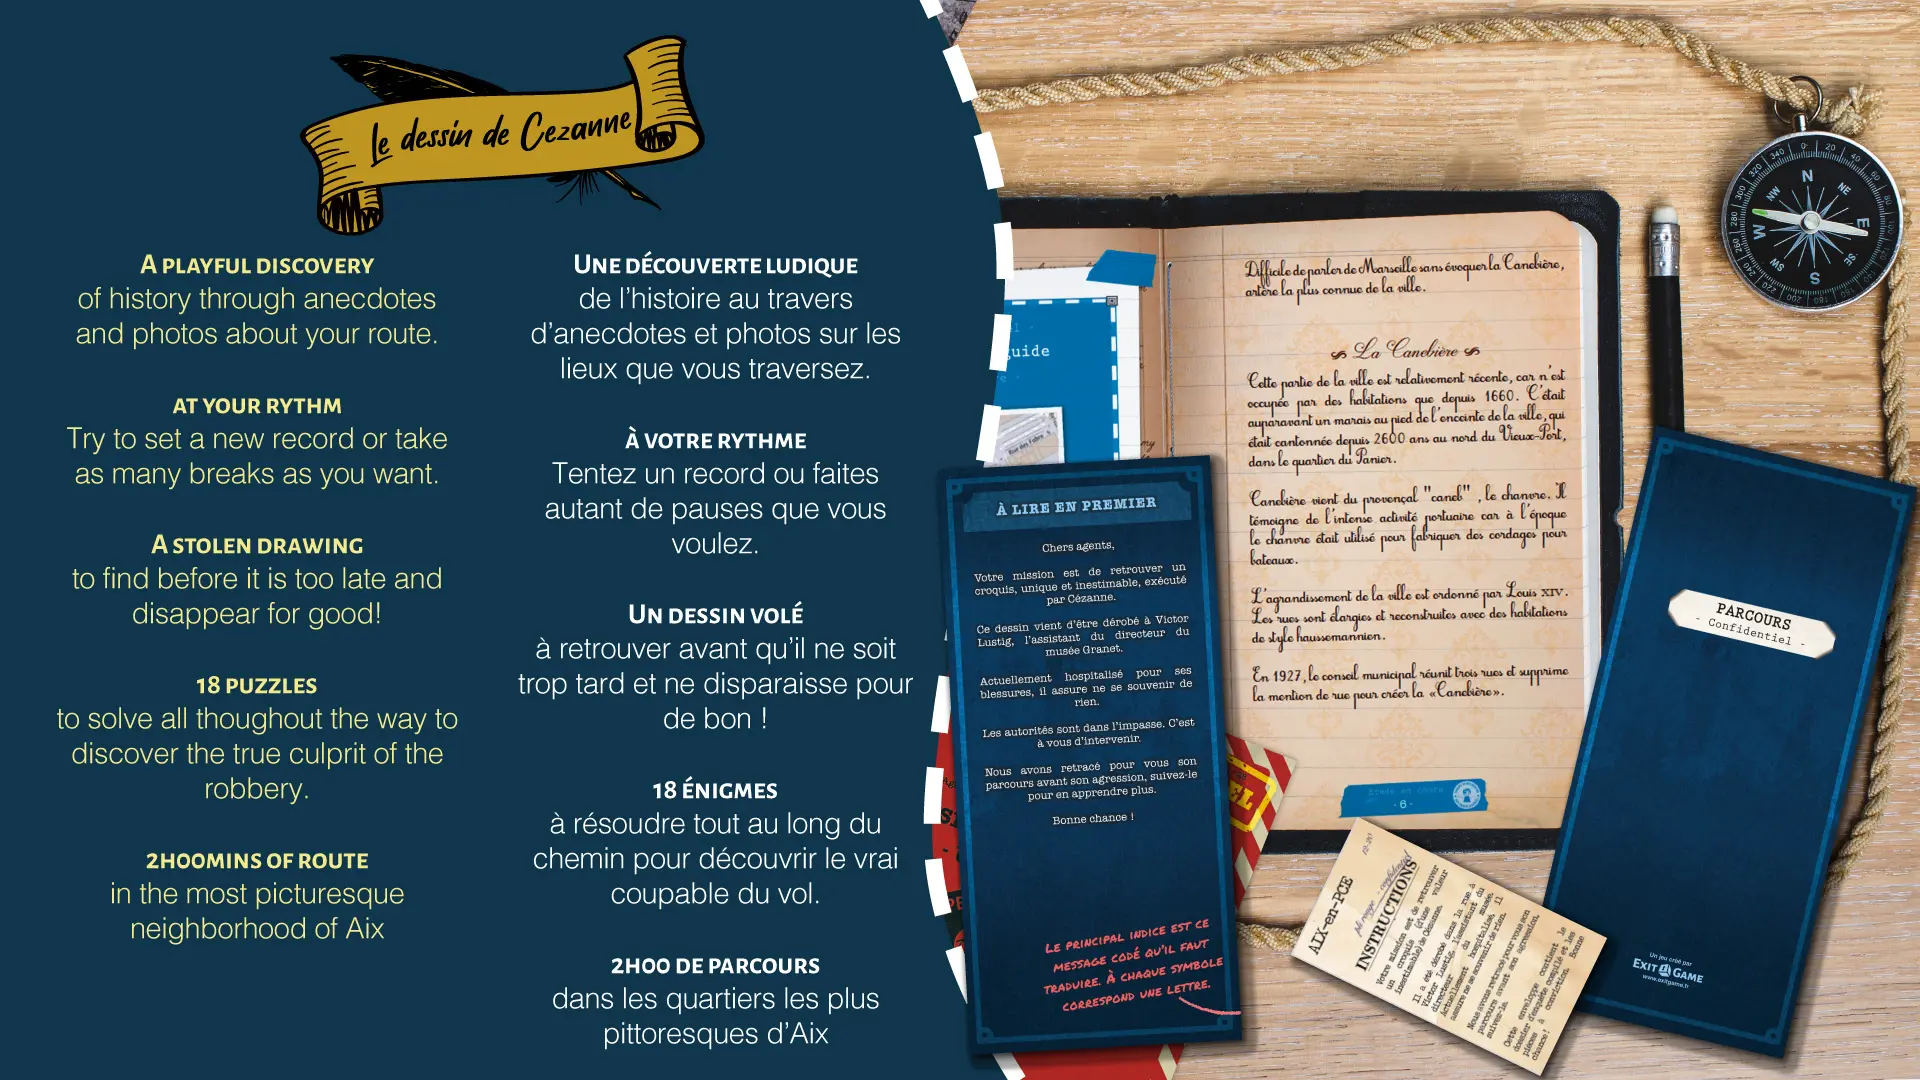 Le dessin de Cezanne
A PLAYFUL DISCOVERY
of history through anecdotes
and photos about your route.
AT YOUR RYTHM
Try to set a new record or take
as many breaks as you want.
A STOLEN DRAWING
to find before it is too late and
disappear for good!
18 PUZZLES
to solve all thoughout the way to
discover the true culprit of the
robbery.
2H00MINS OF ROUTE
in the most picturesque
neighborhood of Aix
UNE DÉCOUVERTE LUDIQUE
de l'histoire au travers
d'anecdotes et photos sur les
lieux que vous traversez.
À VOTRE RYTHME
Tentez un record ou faites
autant de pauses que vous
voulez.
UN DESSIN VOLÉ
à retrouver avant qu'il ne soit
trop tard et ne disparaisse pour
de bon !
18 ÉNIGMES
à résoudre tout au long du
chemin pour découvrir le vrai
coupable du vol.
2H00 DE PARCOURS
dans les quartiers les plus
pittoresques d'Aix
guide
À LIRE EN PREMIER
Chers agents,
Votre mission est de retrouver un
croquis, unique et inestimable, exécuté
par Cézanne.
Ce dessin vient d'être dérobé à Victor
Lustig, l'assistant du directeur du
musée Granet.
Actuellement hospitalisé pour ses
blessures, il assure ne se souvenir de
rien.
Les autorités sont dans l'impasse. C'est
à vous d'intervenir.
Nous avons retracé pour vous son
parcours avant son agression, suivez-le
pour en apprendre plus.
Bonne chance !
LE PRINCIPAL INDICE EST CE
MESSAGE CODÉ QU'IL FAUT
TRADUIRE. À CHAQUE SYMBOLE
CORRESPOND UNE LETTRE.
Difficile de parler de Marseille sans évoquer la Canebière,
artère la plus connue de la ville.
La Canebière
Cette partie de la ville est relativement récente, car n'est
occupée par des habitations que depuis 1660. C'était
auparavant un marais au pied de l'enceinte de la ville, qui
était cantonnée depuis 2600 ans au nord du Vieux-Port,
dans le quartier du Panier.
Canebière vient du provençal "caneb" , le chanvre. Il
témoigne de l'intense activité portuaire car à l'époque
le chanvre était utilisé pour fabriquer des cordages pour
bateaux.
L'agrandissement de la ville est ordonné par Louis XIV.
Les rues sont élargies et reconstruites avec des habitations
de style haussemannien.
En 1927, le conseil municipal réunit trois rues et supprime
la mention de rue pour créer la «Canebière».
Etude en cours
-6-
N
NE
E
SE
S
SW
W
NW
PARCOURS
- Confidentiel -
Un jeu créé par
EXIT GAME
www.exitgame.fr
AIX-en-PCE
INSTRUCTIONS
Votre mission est de retrouver
un croquis (d'une valeur
inestimable) de Cézanne.
Il a été dérobé dans la rue à
Victor Lustig, l'assistant du
directeur du musée.
Actuellement hospitalisé, il
assure ne se souvenir de rien.
Nous avons retracé pour vous son
parcours avant son agression,
suivez-le.
Cette enveloppe contient le
dossier d'enquête compilé et les
pièces à conviction. Bonne
chance !